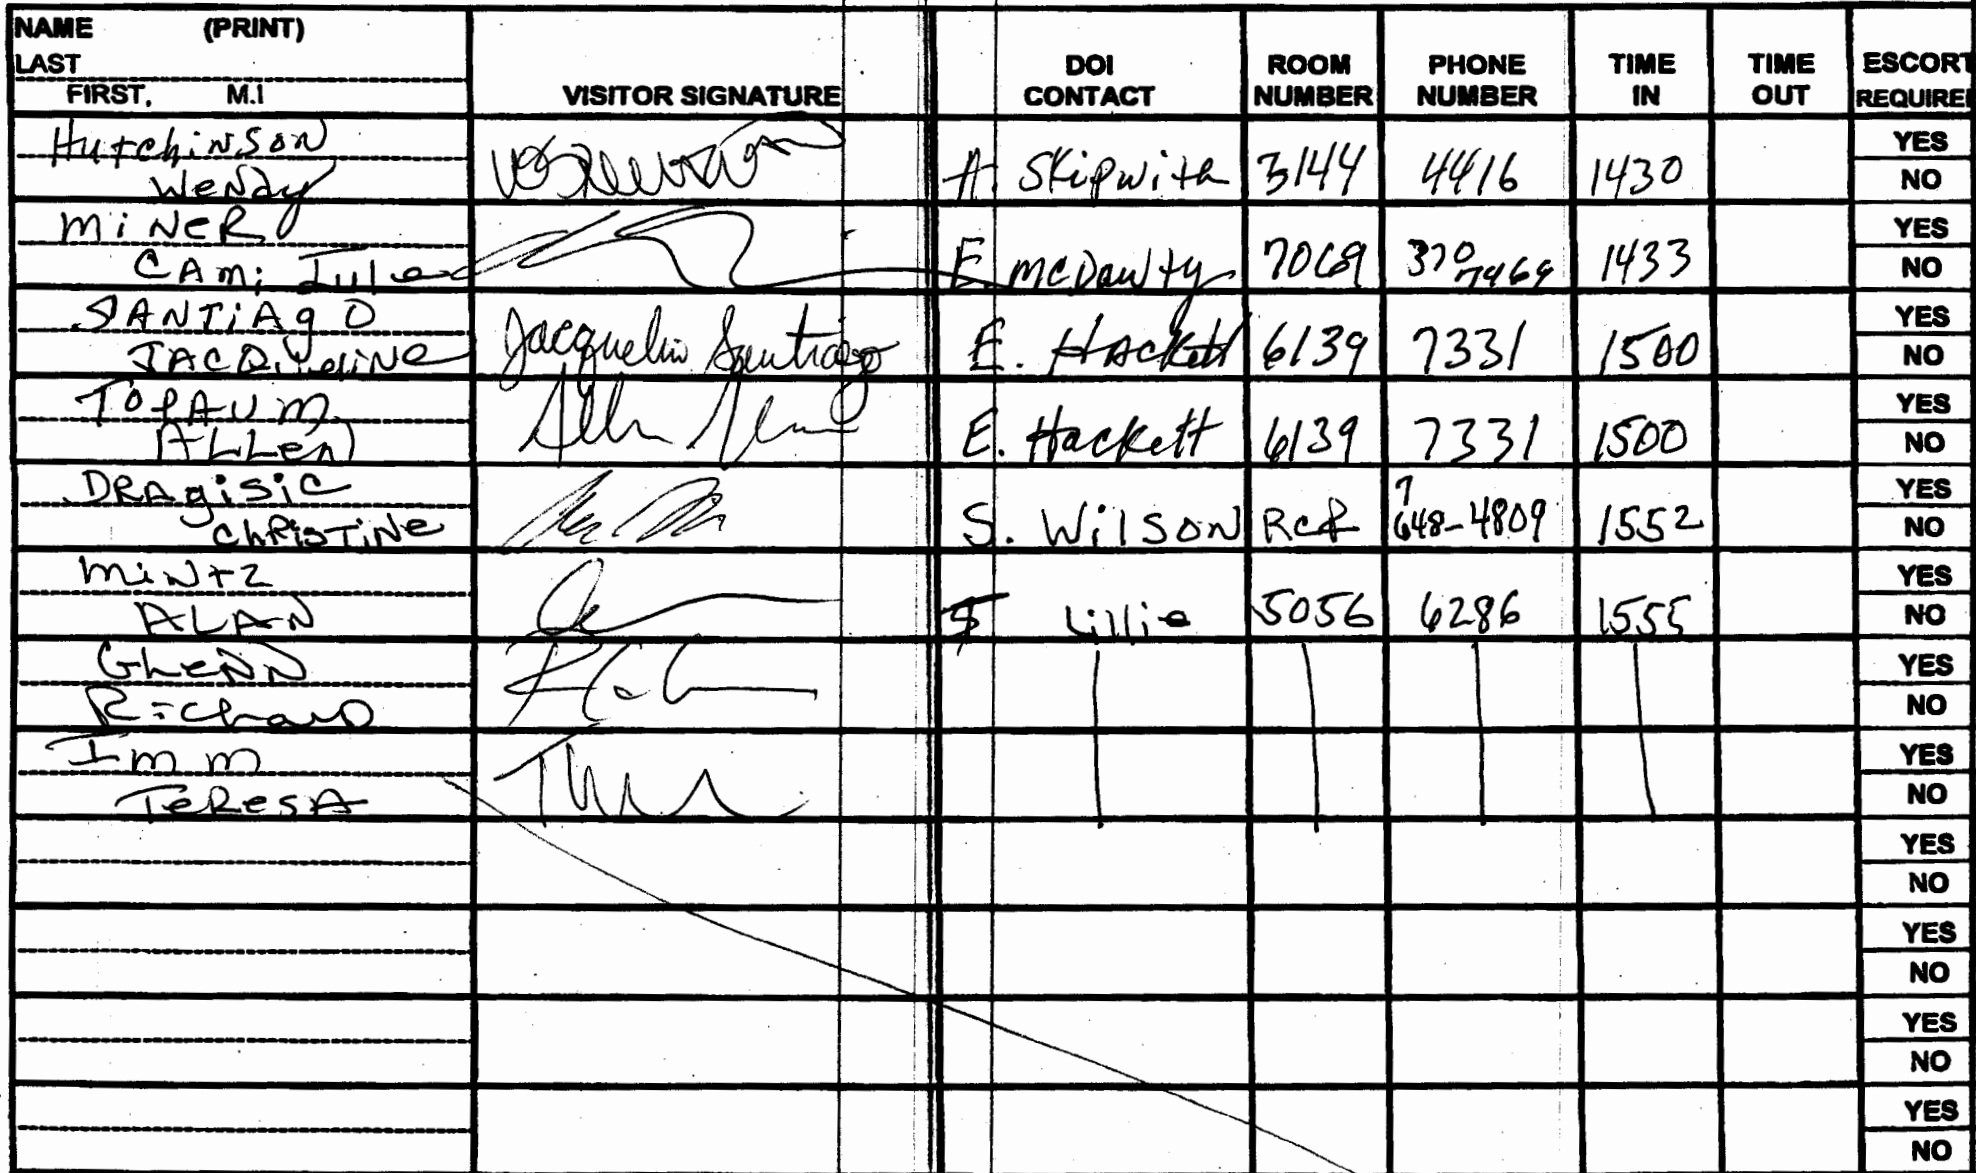 NAME (PRINT)
LAST
FIRST, M.I
VISITOR SIGNATURE
DOI CONTACT
ROOM NUMBER
PHONE NUMBER
TIME IN
TIME OUT
ESCORT REQUIRED
Hutchinson
Wendy
A. Skipwith 3144 4416 1430
YES
NO
MiNeR
CAMi
E 7069 370 7469 1433
YES
NO
SANTiAgO
JACQueliNe
Jacquelin Santiago
E. Hackett 6139 7331 1500
YES
NO
ALLen
E. Hackett 6139 7331 1500
YES
NO
DRAgiSiC
ChRiSTiNe
S. WilSON 648-4809 1552
YES
NO
MiNtz
ALAN
Lillie 5056 6286 1555
YES
NO
GLeNN
RichaRD
YES
NO
Imm
TeReSA
YES
NO
YES
NO
YES
NO
YES
NO
YES
NO